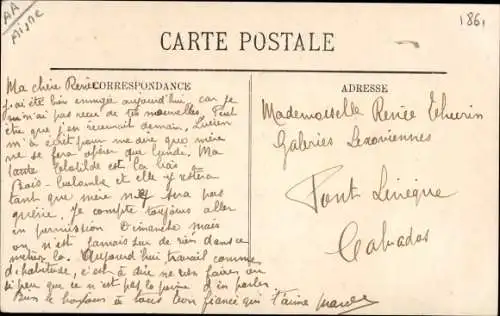 AA
Aisne
1861
CARTE POSTALE
CORRESPONDANCE
ADRESSE
Ma chère Renée
j'ai été bien ennuyé aujourd'hui car je
n'ai pas reçu de tes nouvelles Peut
être que j'en recevrait demain. Lucien
m'a écrit pour me dire que mère
ne se fera opérer que lundi. Ma
tante Clotilde est là bas
Bois-Colombe et elle y restera
tant que mère ne sera pas
guérie. Je compte toujours aller
en permission Dimanche mais
on n'est jamais sur de rien dans ce
métier la. Aujourd'hui travail comme
d'habitude, c'est à dire ne rien faire ou
si peu que ce n'est pas la peine d'en parler.
Bien le bonjour à tous ton fiancé qui t'aime
Mademoiselle Renée
Galeries Lexoviennes
Pont Levêque
Calvados